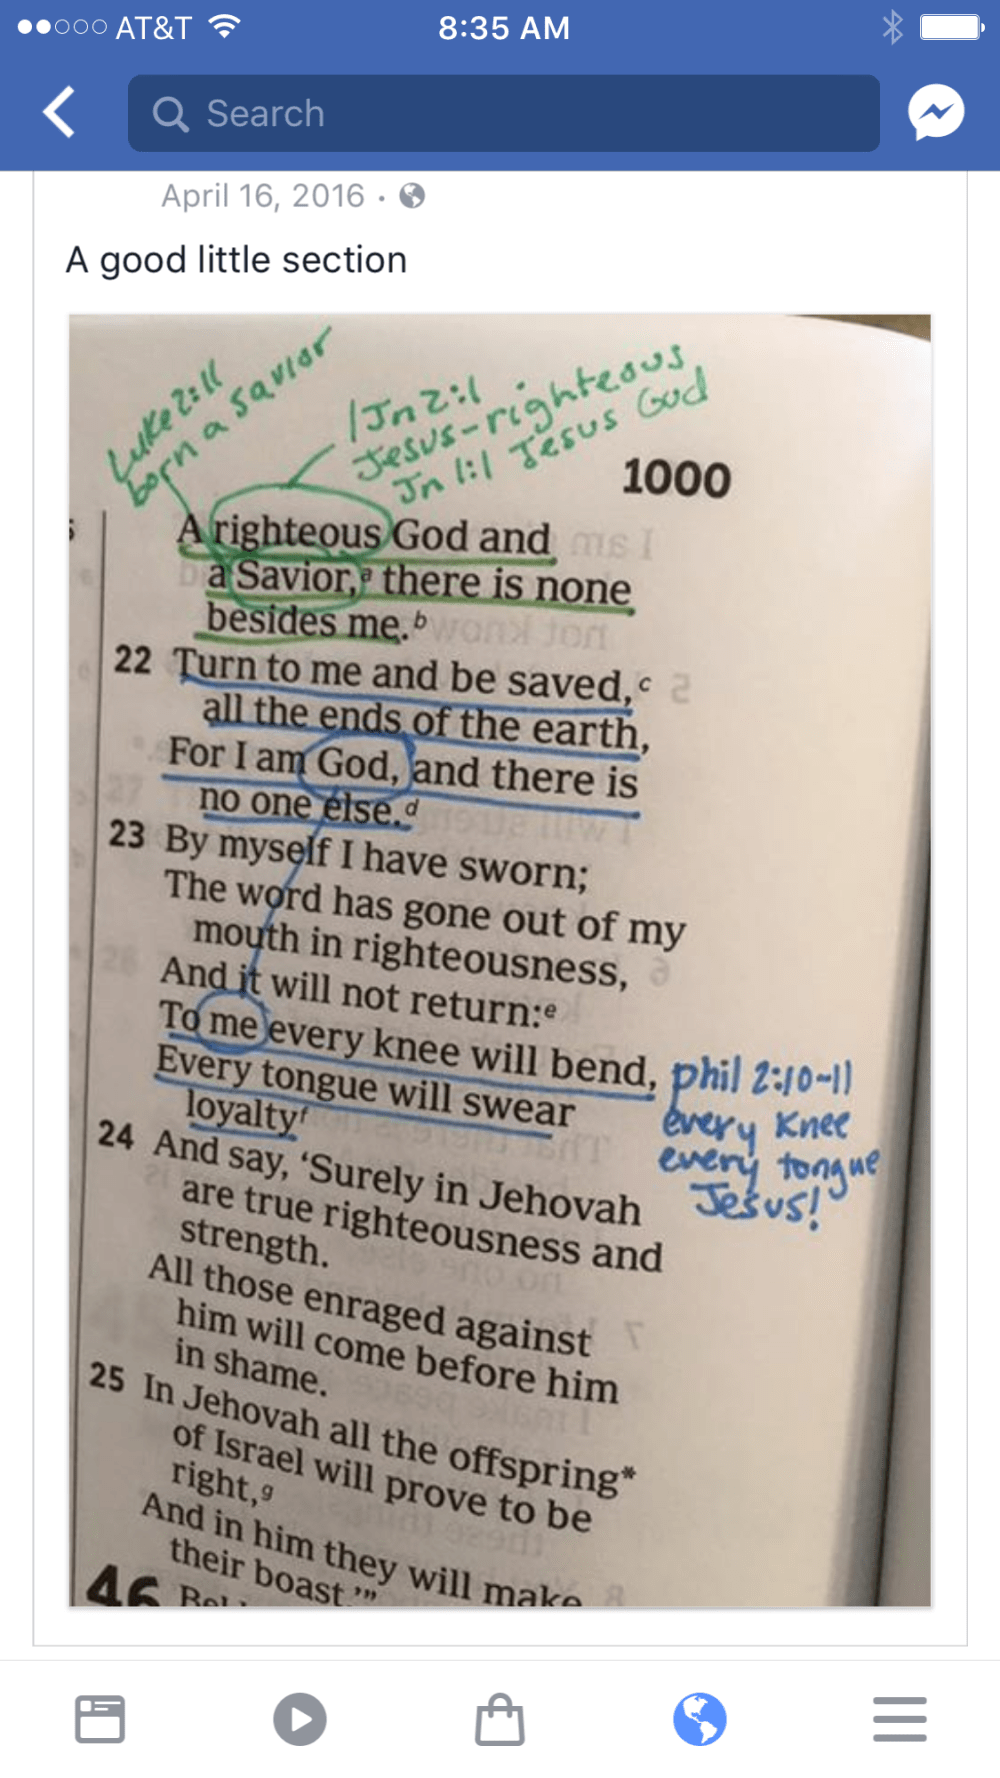 AT&T 8:35 AM
Search
April 16, 2016 ·
A good little section
Luke 2:11
born a savior
1Jn 2:1
Jesus-righteous
Jn 1:1 Jesus God
1000
A righteous God and
a Savior,ᵃ there is none
besides me.ᵇ
22 Turn to me and be saved,ᶜ
all the ends of the earth,
For I am God, and there is
no one else.ᵈ
23 By myself I have sworn;
The word has gone out of my
mouth in righteousness,
And it will not return:ᵉ
To me every knee will bend,
Every tongue will swear
loyaltyᶠ
phil 2:10-11
every Knee
every tongue
Jesus!
24 And say, ‘Surely in Jehovah
are true righteousness and
strength.
All those enraged against
him will come before him
in shame.
25 In Jehovah all the offspring*
of Israel will prove to be
right,ᵍ
And in him they will make
their boast.’”
46